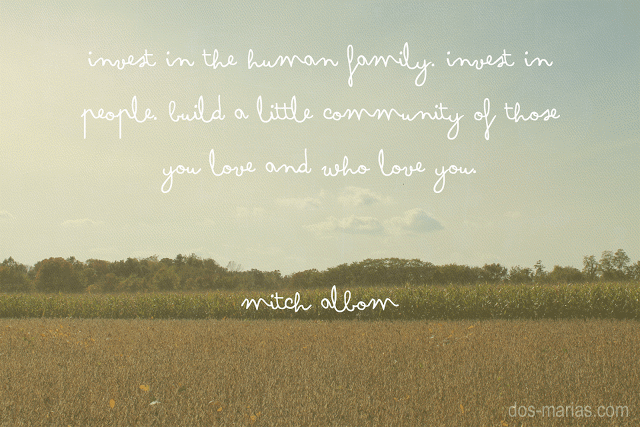 invest in the human family. invest in
people. build a little community of those
you love and who love you.
mitch albom
dos-marias.com